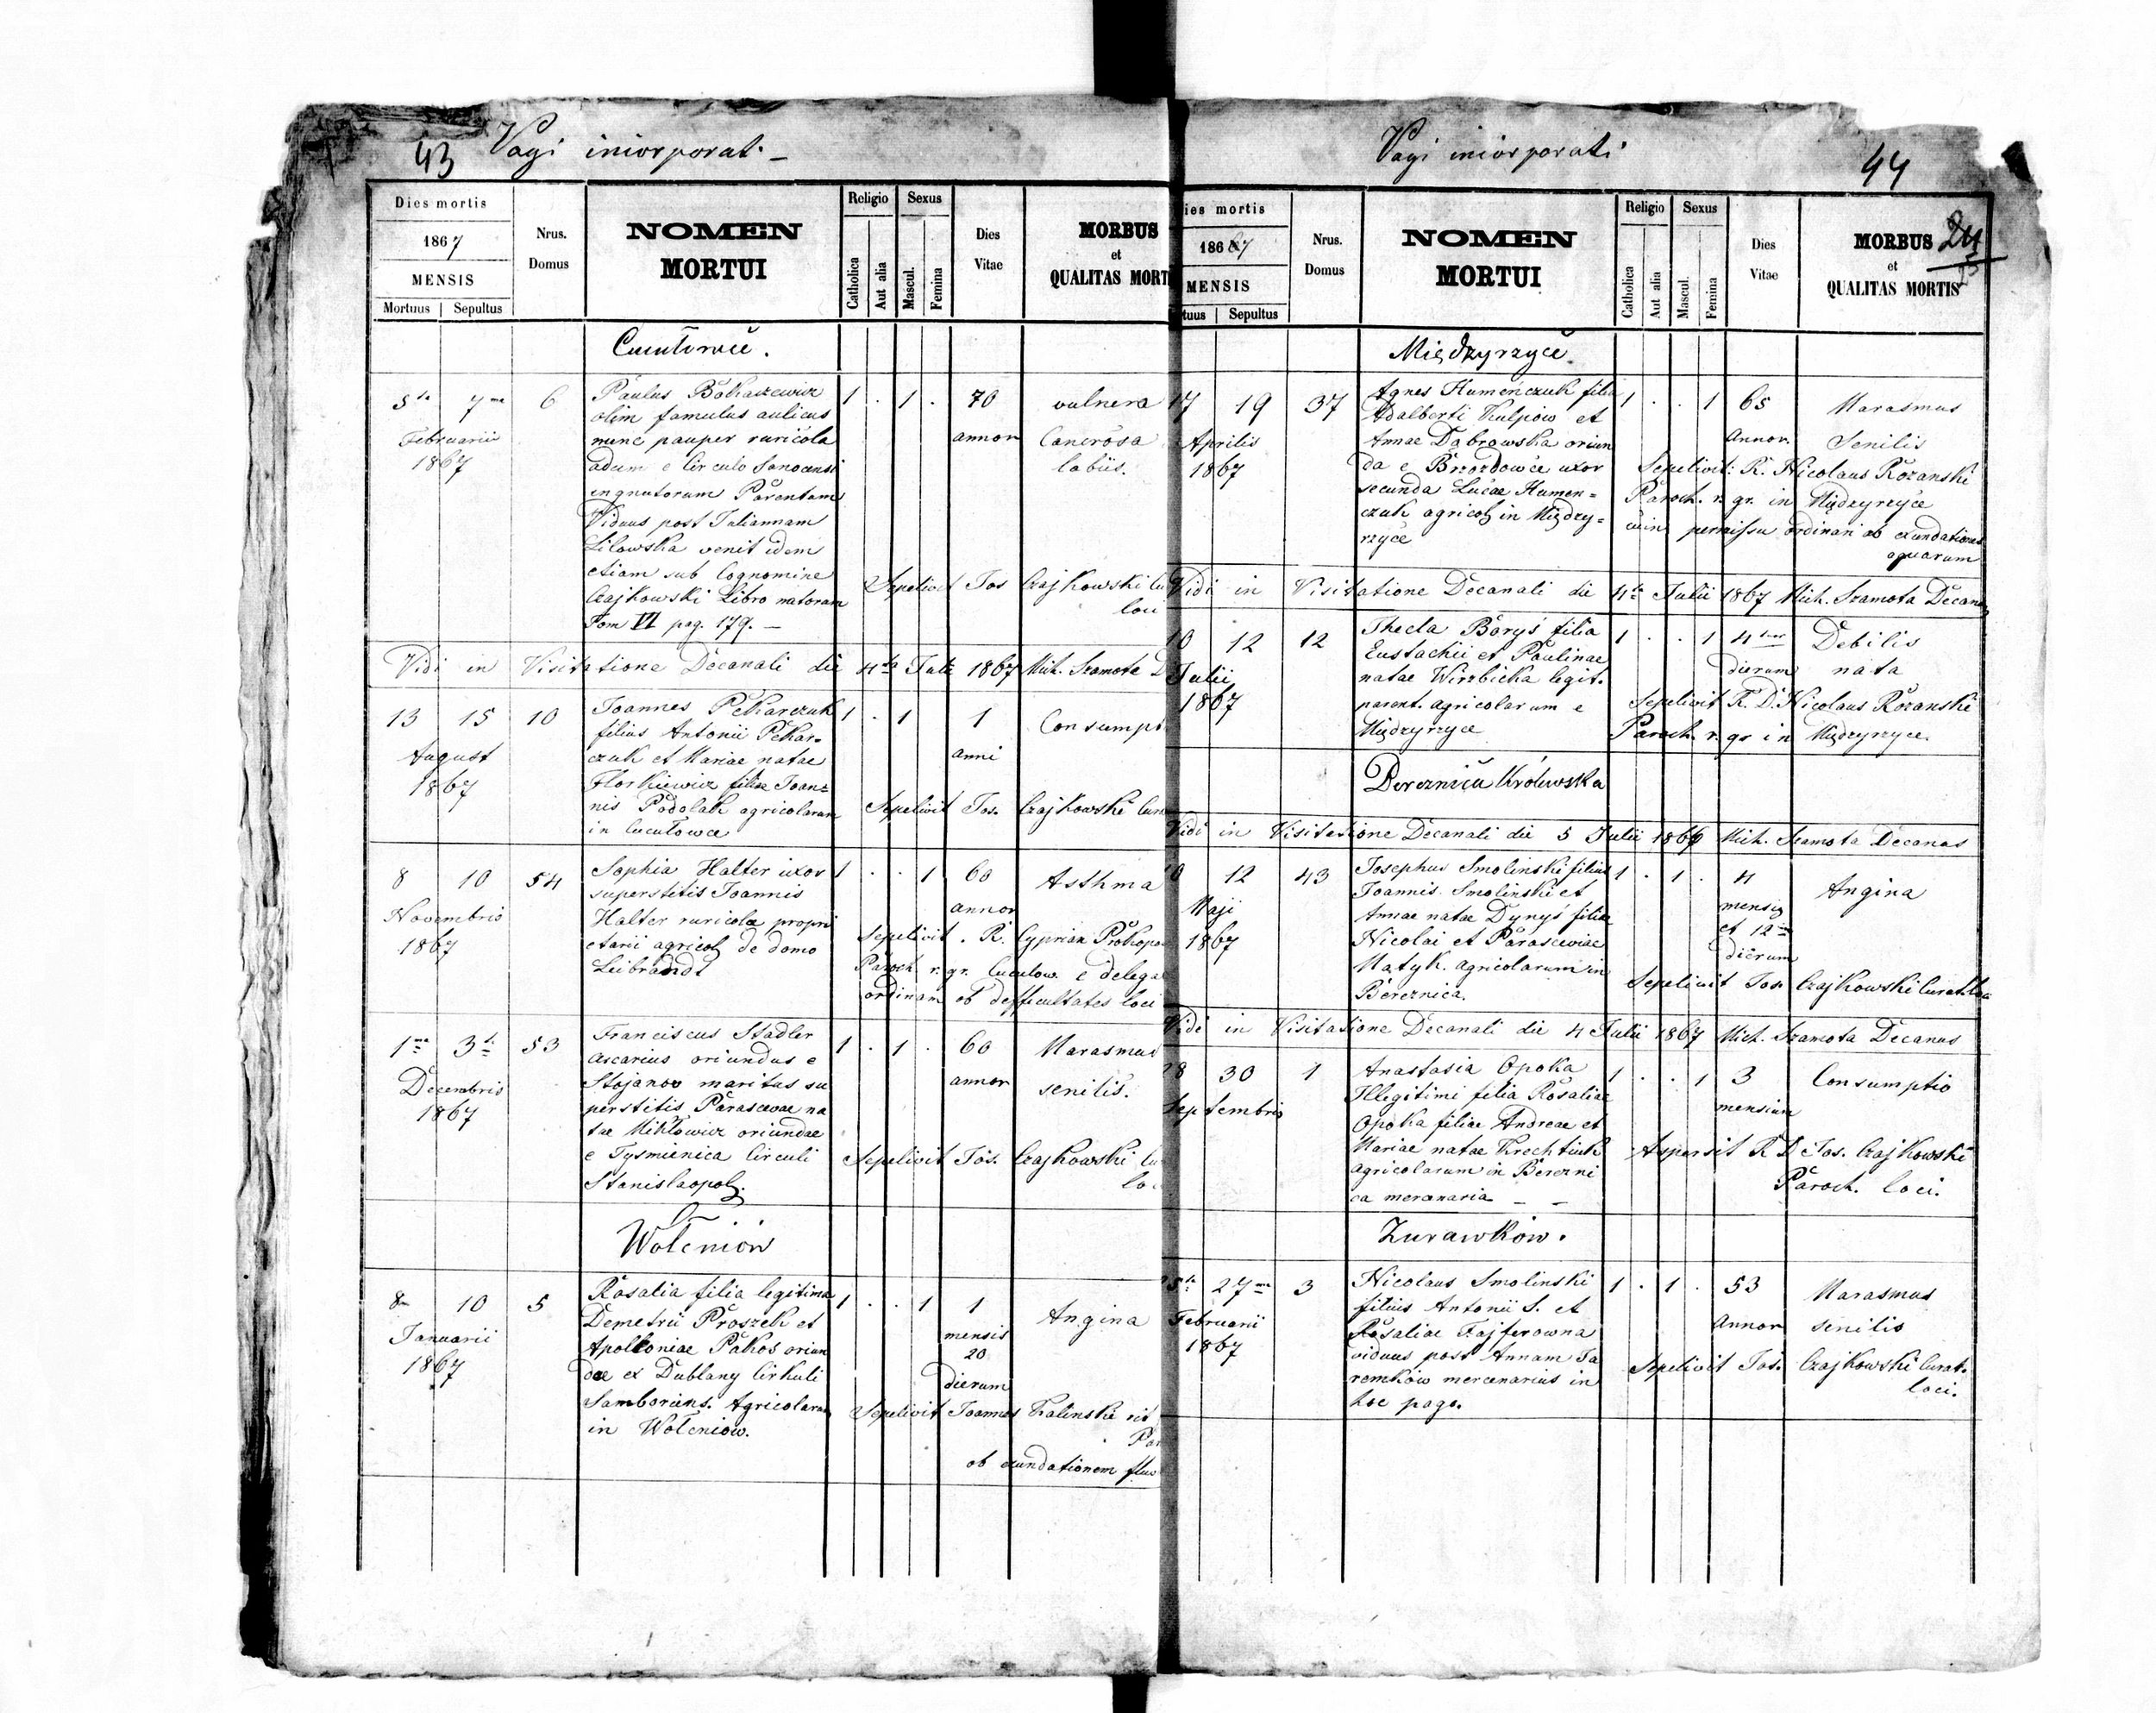 43 Vagi incorporati
Dies mortis
1867
MENSIS
Mortuus Sepultus
Nrus. Domus
NOMEN MORTUI
Religio
Catholica
Aut alia
Sexus
Mascul.
Femina
Dies Vitae
MORBUS
et
QUALITAS MORT
Cucułowce.
5ta 7ma 6 Paulus Bokaszewicz 1 . 1 . 70 vulnera
olim famulus aulicus
Februarii nunc pauper ruricola annor cancrosa
1867 adum e Circulo Sanocensi labiis.
ingnotorum Parentum
Viduus post Juliannam
Lilowska venit idem
etiam sub Cognomine Sepelivit Jos Czajkowski Cu
Czajkowski Libro natorum loci
Tom VI pag. 179. —
Vidi in Visitatione Decanali die 4ta Juli 1867 Mich. Szamota D
13 15 10 Joannes Pekarczuk 1 . 1 1 Consumpt
filius Antonii Pekar-
August czuk et Mariae natae anni
1867 Florkiewicz filiae Joan=
nis Podolak agricolarum Sepelivit Jos. Czajkowski Cura
in Cucułowce
8 10 54 Sophia Halter uxor 1 . . 1 60 Asthma
superstitis Joannis
Novembris Halter ruricolae propri annor
1867 etarii agricol de domo Sepelivit . R. Cyprian Prokopo
Leibrandt Paroch r. gr. Cucułow. e delega
ordinam ob defficultates loci
1ma 3ti 53 Franciscus Stadler 1 . 1 . 60 Marasmus
ascarius oriundus e
Decembris Stojanow maritus su annor senilis.
1867 perstitis Parascevae na
tae Mikłowicz oriundae
e Tysmienica Circuli Sepelivit Jos. Czajkowski Cu
Stanislaopol. loc
Wołeniów
8 10 5 Rosalia filia legitima 1 . . 1 1 Angina
Demetrii Proszek et
Januarii Apolloniae Pakos oriun mensis
1867 dae ex Dublany Cirkuli 20 dierum
Samboriens. Agricolarum Sepelivit Joannes Kalinski rit
in Wołeniow. Par
ob exundationem fluv
Vagi incorporati 44
ies mortis
1867
MENSIS
tuus Sepultus
Nrus. Domus
NOMEN MORTUI
Religio
Catholica
Aut alia
Sexus
Mascul.
Femina
Dies Vitae
MORBUS 24
et
QUALITAS MORTIS
Międzyrzyce.
17 19 37 Agnes Humeńczuk filia 1 . . 1 65 Marasmus
Adalberti Kulpiow et
Aprilis Annae Dąbrowska oriun Annor. Senilis
1867 da e Brzozdowce uxor Sepelivit: R. Nicolaus Rozanski
secunda Lucae Humen= Paroch. r. gr. in Międzyrzyce
czuk agricol in Między= cum permissu ordinari ob exundationes
rzyce aquarum
Vidi in Visitatione Decanali die 4ta Julii 1867 Mich. Szamota Decanus
10 12 12 Thecla Boryś filia 1 . . 1 4 Debilis
Eustachii et Paulinae
Julii natae Wirzbicka legit. dierum nata
1867 parent. agricolarum e Sepelivit R. D. Nicolaus Rozanski
Międzyrzyce Paroch. r. gr in Międzyrzyce.
Bereznica Królewska
Vidi in Visitatione Decanali die 5 Julii 1866 Mich. Szamota Decanus
0 12 43 Josephus Smolinski filius 1 . 1 . 4 Angina
Joannis Smolinski et
Maji Annae natae Dynyś filiae mensis
1867 Nicolai et Parasceviae et 12 dierum
Matyk. agricolarum in
Bereznica. Sepelivit Jos Czajkowski Curat. loci
Vidi in Visitatione Decanali die 4 Julii 1867 Mich. Szamota Decanus
28 30 1 Anastasia Opoka 1 . . 1 3 Consumptio
Illegitimi filia Rosaliae
Septembris Opoka filiae Andreae et mensium
Mariae natae Krechtiuk Aspersit R D Jos. Czajkowski
agricolarum in Berezni Paroch. loci.
ca mercenaria — —
Zurawków.
5ta 27ma 3 Nicolaus Smolinski 1 . 1 . 53 Marasmus
filius Antonii S. et
Februarii Rosaliae Fajferowna Annor senilis
1867 viduus post Annam Ja Sepelivit Jos. Czajkowski Curat.
remków mercenarius in loci.
hoc pago.